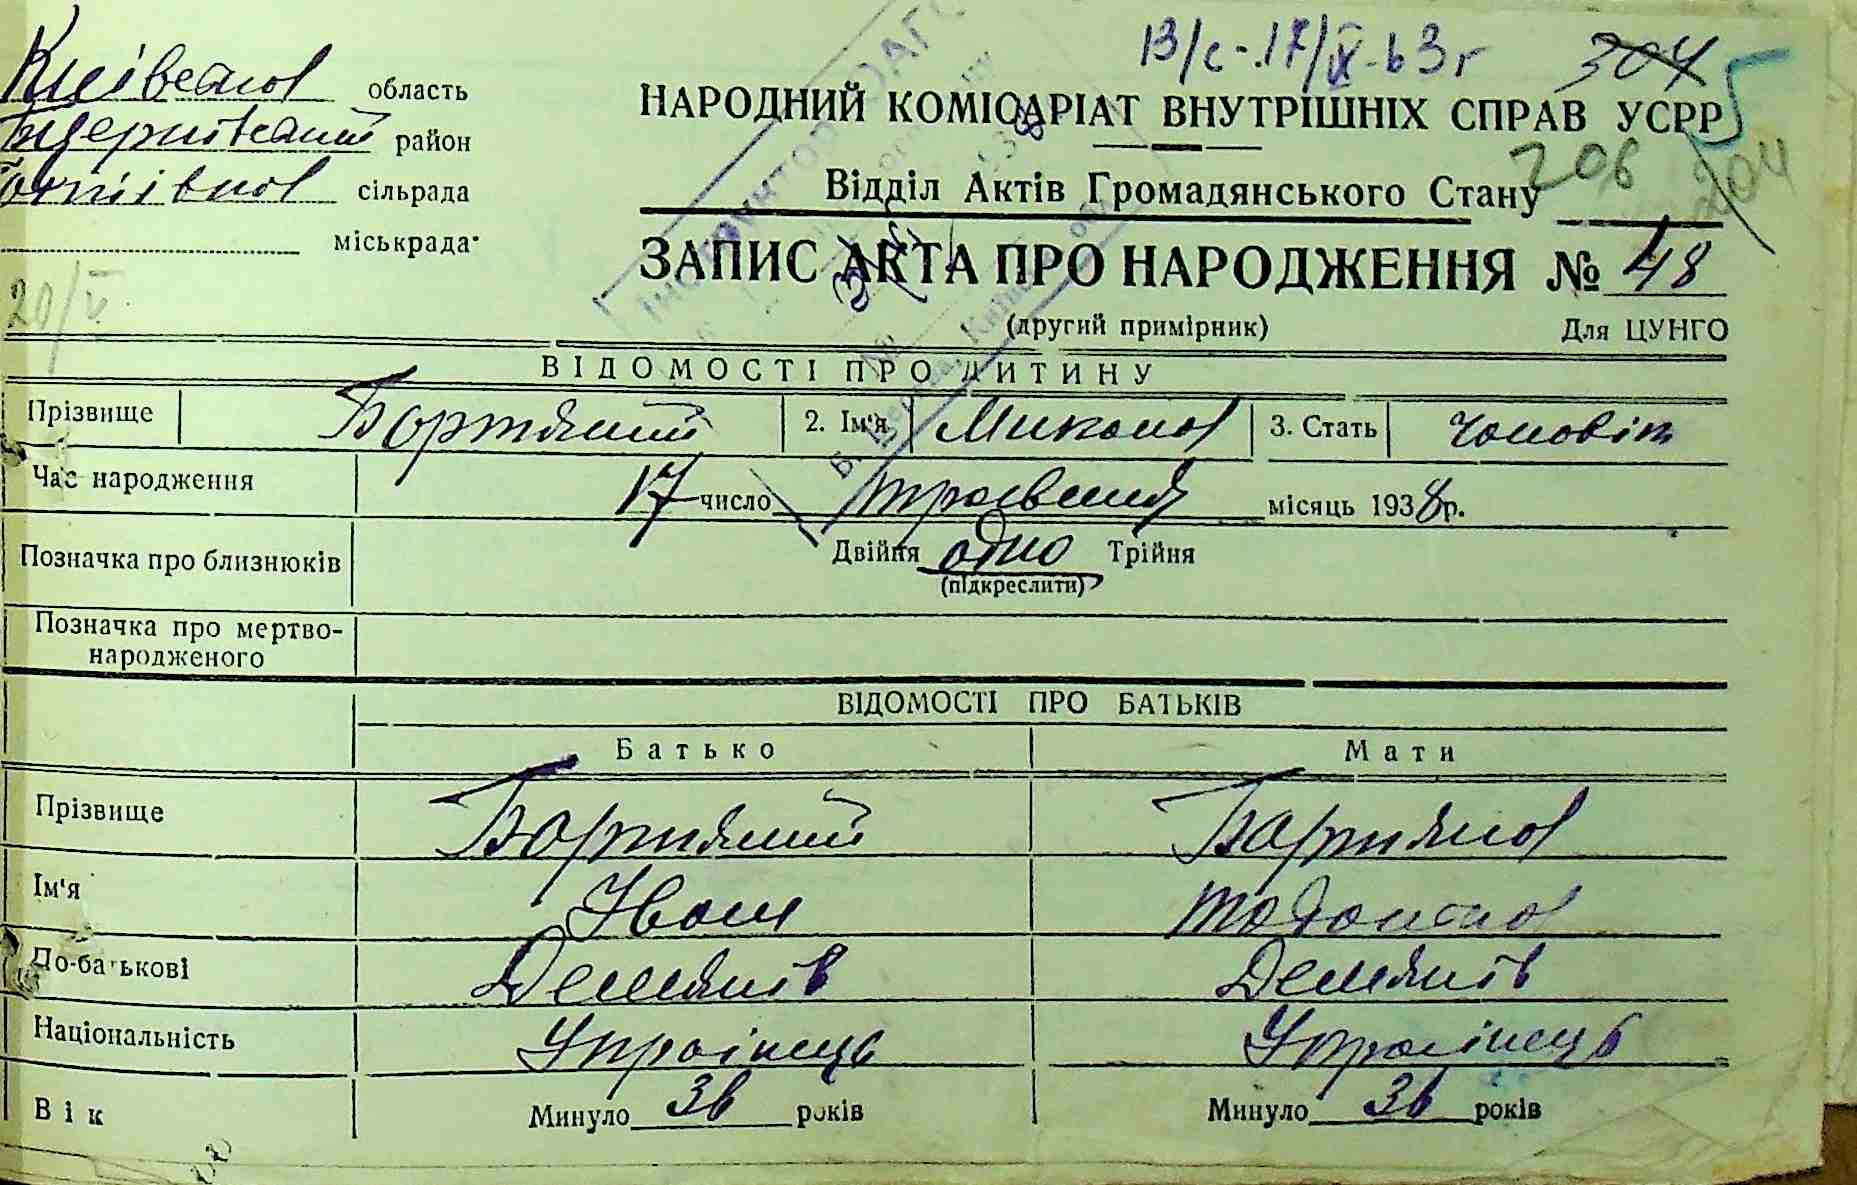 13/с-17/ІХ-63г 304 5
Київська область
район
сільрада
міськрада
НАРОДНИЙ КОМІСАРІАТ ВНУТРІШНІХ СПРАВ УСРР
206 204
Відділ Актів Громадянського Стану
ЗАПИС АКТА ПРО НАРОДЖЕННЯ № 48
20/V
(другий примірник) Для ЦУНГО
ВІДОМОСТІ ПРО ДИТИНУ
Прізвище Бортяний 2. Ім'я Микола 3. Стать чоловік
Час народження 17 число травня місяць 1938р.
Позначка про близнюків Двійня одно Трійня
(підкреслити)
Позначка про мертво-
народженого
ВІДОМОСТІ ПРО БАТЬКІВ
Батько Мати
Прізвище Бортяний Бартяна
Ім'я Іван
По-батькові Демянів Демянів
Національність Українець Українець
Вік Минуло 36 років Минуло 36 років